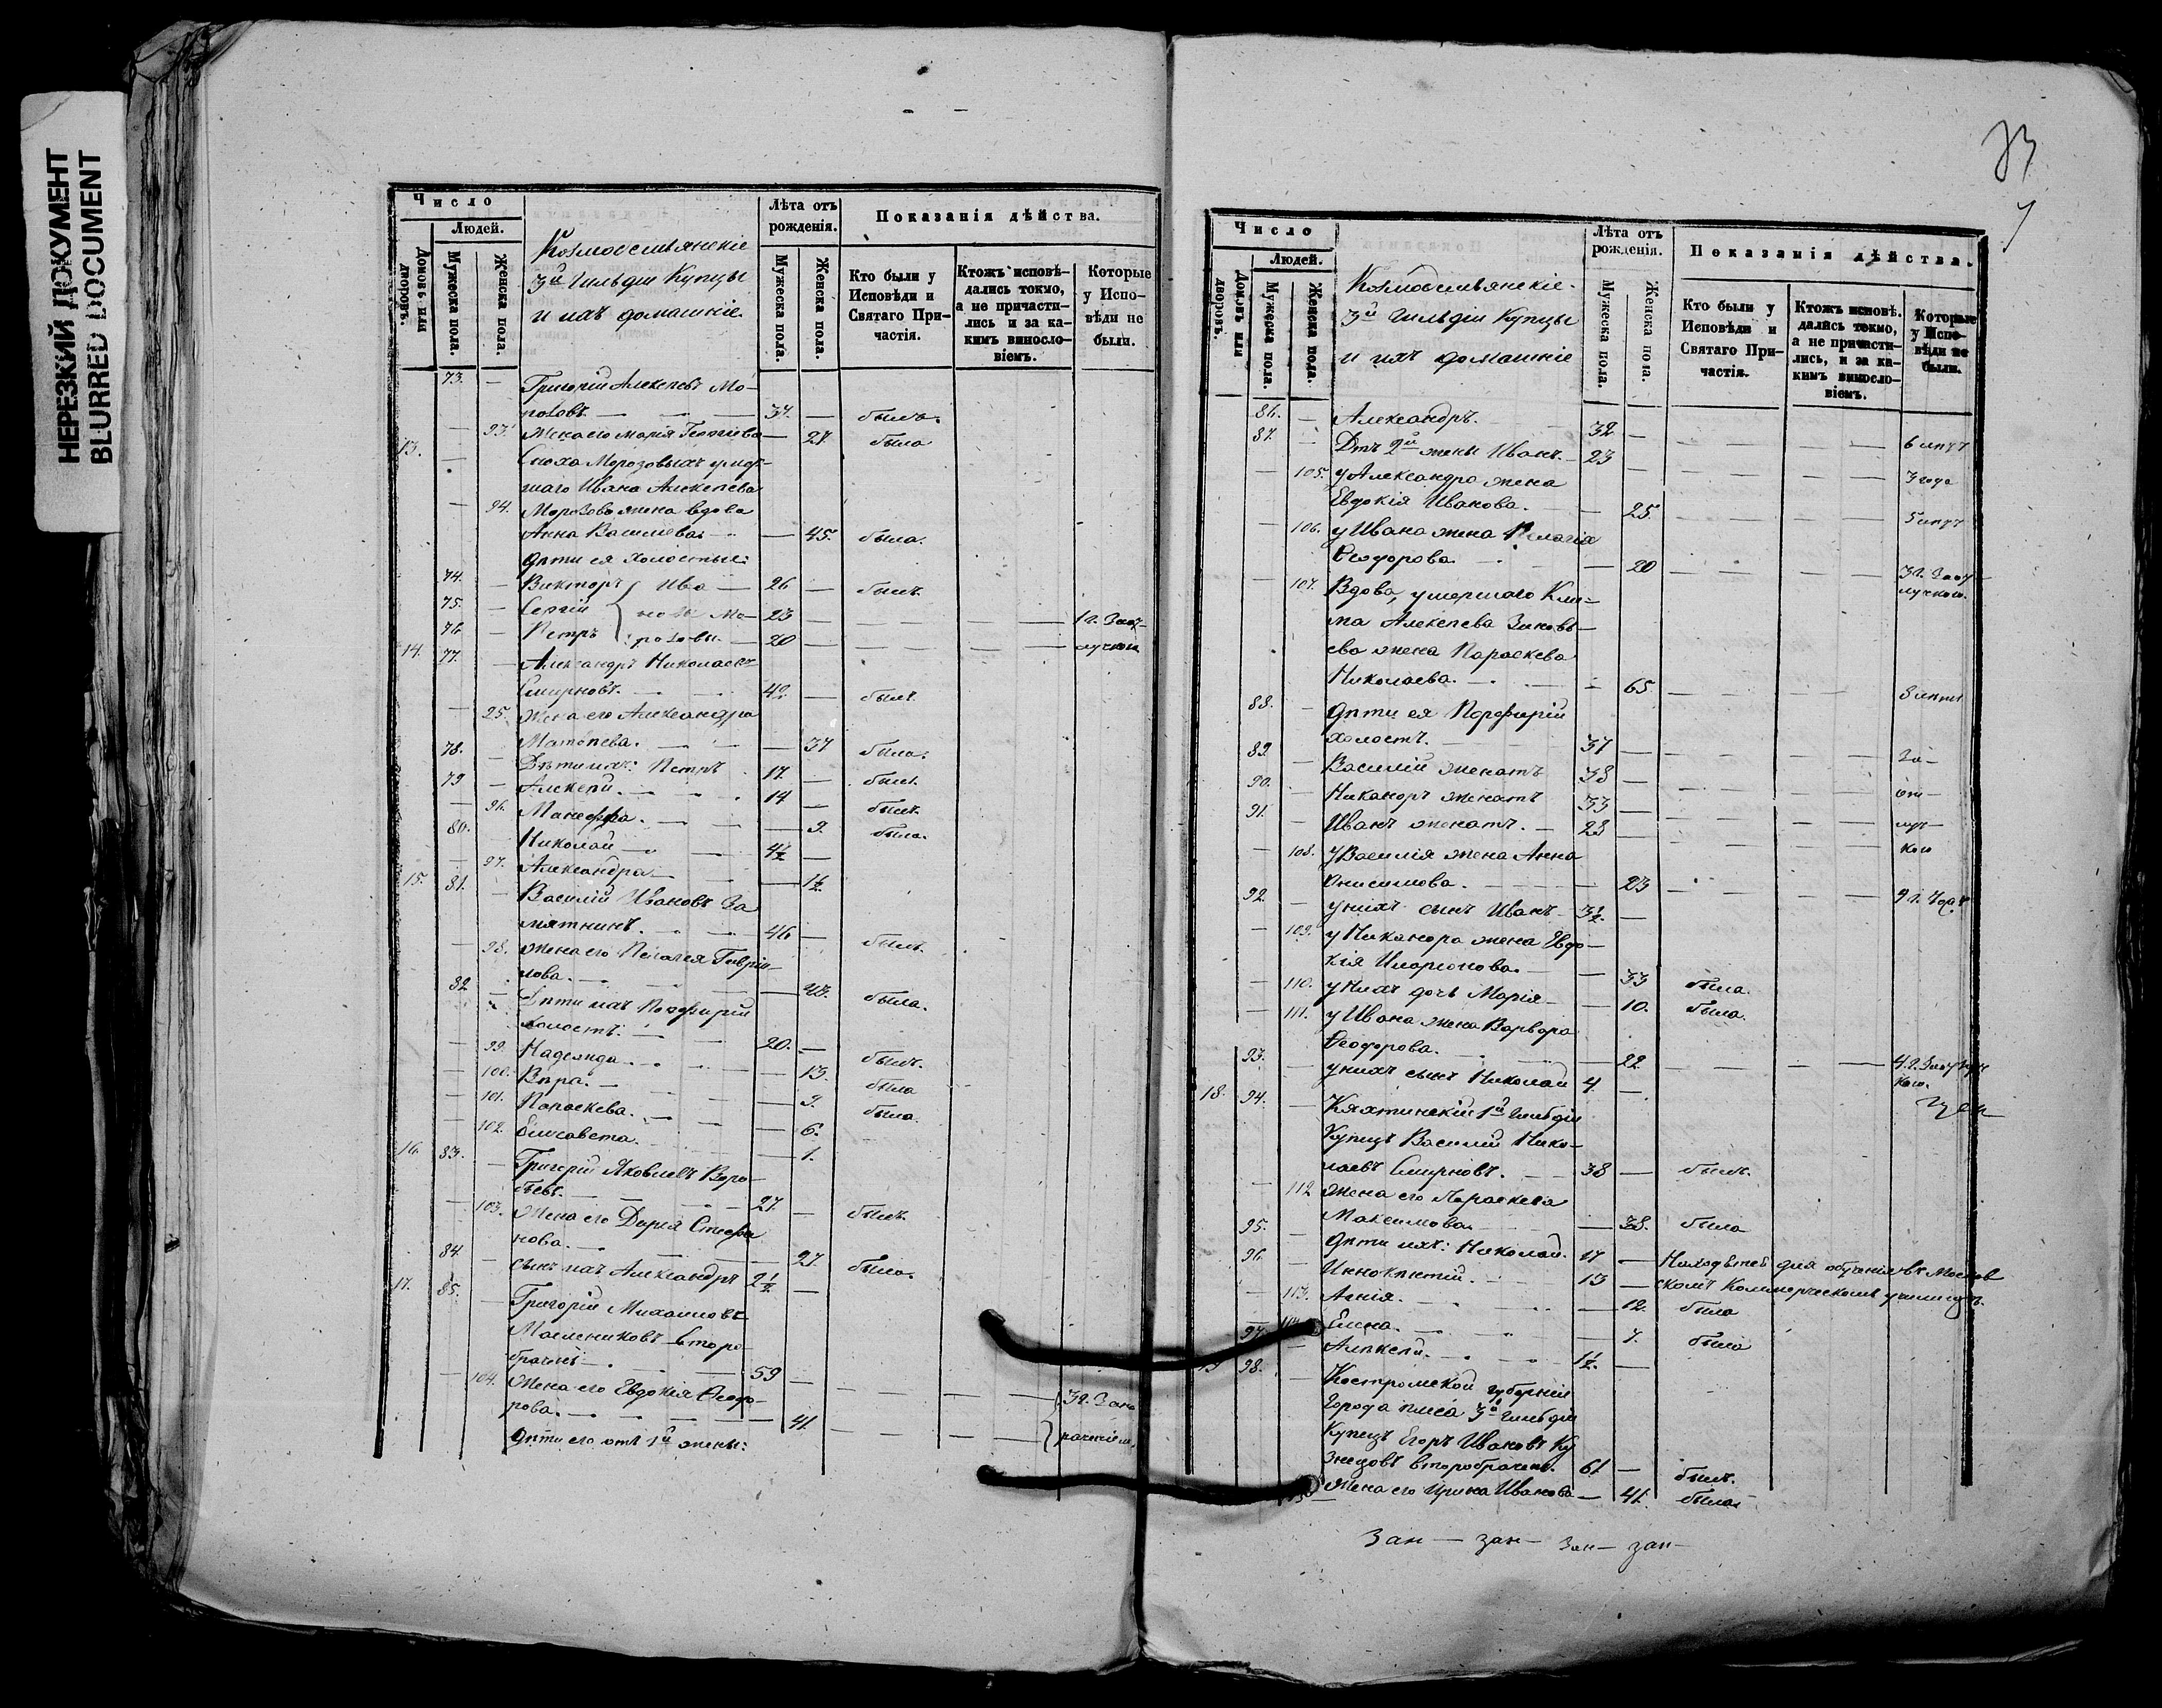 НЕРЕЗКИЙ ДОКУМЕНТ
BLURRED DOCUMENT
Число
Людей.
Домовъ или дворовъ.
Мужеска пола.
Женска пола.
Козмодемьянскіе
3й Гильдіи Купцы
и ихъ домашніе.
Лѣта отъ рожденія.
Мужеска пола.
Женска пола.
Показанія дѣйства.
Кто были у Исповѣди и Святаго Причастія.
Ктожъ исповѣдались токмо, а не причастились и за какимъ винословіемъ.
Которые у Исповѣди не были.
73. — Григорій Алексѣевъ Мо-
розовъ — 34. — былъ.
— 93. Жена его Марія Георгіева — 27. была
13. — Сноха Морозовыхъ умер-
шаго Ивана Алексѣева
— 94. Морозова жена вдова
Анна Васильева — 45. была.
Дѣти ея холостые:
74. — Викторъ Ива — 26 — былъ.
75. — Сергій новы Мо- 23 — 1 г. Заот-
76 — Петръ розовы. — 20 — лучкою
14. 77. — Александръ Николаевъ
Смирновъ. — 42. — былъ.
— 95. Жена его Александра
Матвѣева. — 37 была.
78. — Дѣти ихъ: Петръ 17. — былъ.
79 — Алексѣй. 14 — былъ.
— 96. Манефа. — 9. была.
80. Николай — 4½ —
— 97. Александра — 1½
15. 81. — Василій Ивановъ За
мятнинъ. — 46 — былъ.
— 98. Жена его Пелагея Гавріи-
лова. — 43. была.
82 — Дѣти ихъ Порфирій
холостъ. 20. — былъ.
— 99. Надежда. — 13. была
— 100. Вѣра. — 9. была
— 101. Параскева. — 6.
— 102. Елисавета. — 1.
16. 83. — Григорій Яковлевъ Воро-
бьевъ. — 27. — былъ.
— 103. Жена его Дарья Стефа
нова. — 27. была.
84. — сынъ ихъ Александръ 2½ —
17. 85. — Григорій Михаиловъ
Масленниковъ второ-
брачный — 59 —
— 104. Жена его Евдокія Ѳеодо-
рова. — 41. — 3 г. Зане
Дѣти его отъ 1й жены: раченіемъ
Число
Людей.
Домовъ или дворовъ.
Мужеска пола.
Женска пола.
Козмодемьянскіе
3й Гильдіи Купцы
и ихъ домашніе
Лѣта отъ рожденія.
Мужеска пола.
Женска пола.
Показанія дѣйства.
Кто были у Исповѣди и Святаго Причастія.
Ктожъ исповѣдались токмо, а не причастились, и за какимъ винословіемъ.
Которые у Исповѣди не были.
86. — Александръ. 32 — 6 лѣтъ
87. — Отъ 2й жены Иванъ. 23 — 3 года
— 105. у Александра жена
Евдокія Иванова. — 25. 5 лѣтъ
— 106. у Ивана жена Пелагія
Ѳеодорова. — 20 — 3 г. Заот-
лучкою.
— 107. Вдова, умершаго Кли-
ма Алексѣева Зиновь-
ева жена Параскева
Николаева. — 65 — 8 лѣтъ
88. — Дѣти ея Порфирій
холостъ. 37 — За-
89. — Василій женатъ 38 — от-
90. — Никаноръ женатъ 33 — луч-
91. — Иванъ женатъ. — 28 — кою
— 108. у Василія жена Анна
Онисимова. — 23
92. — у нихъ сынъ Иванъ 3½ —
— 109. у Никанора жена Евдо-
кія Иларіонова. — 33 была.
— 110. у нихъ дочь Марія — 10. была.
— 111. у Ивана жена Варвара
Ѳеодорова. 22
93. — у нихъ сынъ Николай 4 — кою.
18. 94. — Кяхтинскій 1й Гильдіи
Купецъ Василій Нико-
лаевъ Смирновъ. 38 — былъ.
— 112 Жена его Параскева
Максимова. — 38. была
95. — Дѣти ихъ: Николай. 17 — Находится для обученія въ Москов
96. — Иннокентій. 13 — скомъ Коммерческомъ училищѣ.
— 113. Агнія. — 12. была
Елена. — 7. была
97. — Алексѣй. 1½. —
98. — Костромской губерніи
Города Плеса 3й Гильдіи
Купецъ Егоръ Ивановъ Ку
знецовъ второбрачн. 61 — былъ.
Жена его Ирина Иванова — 41. была
Зан — зан — Зан — зан —